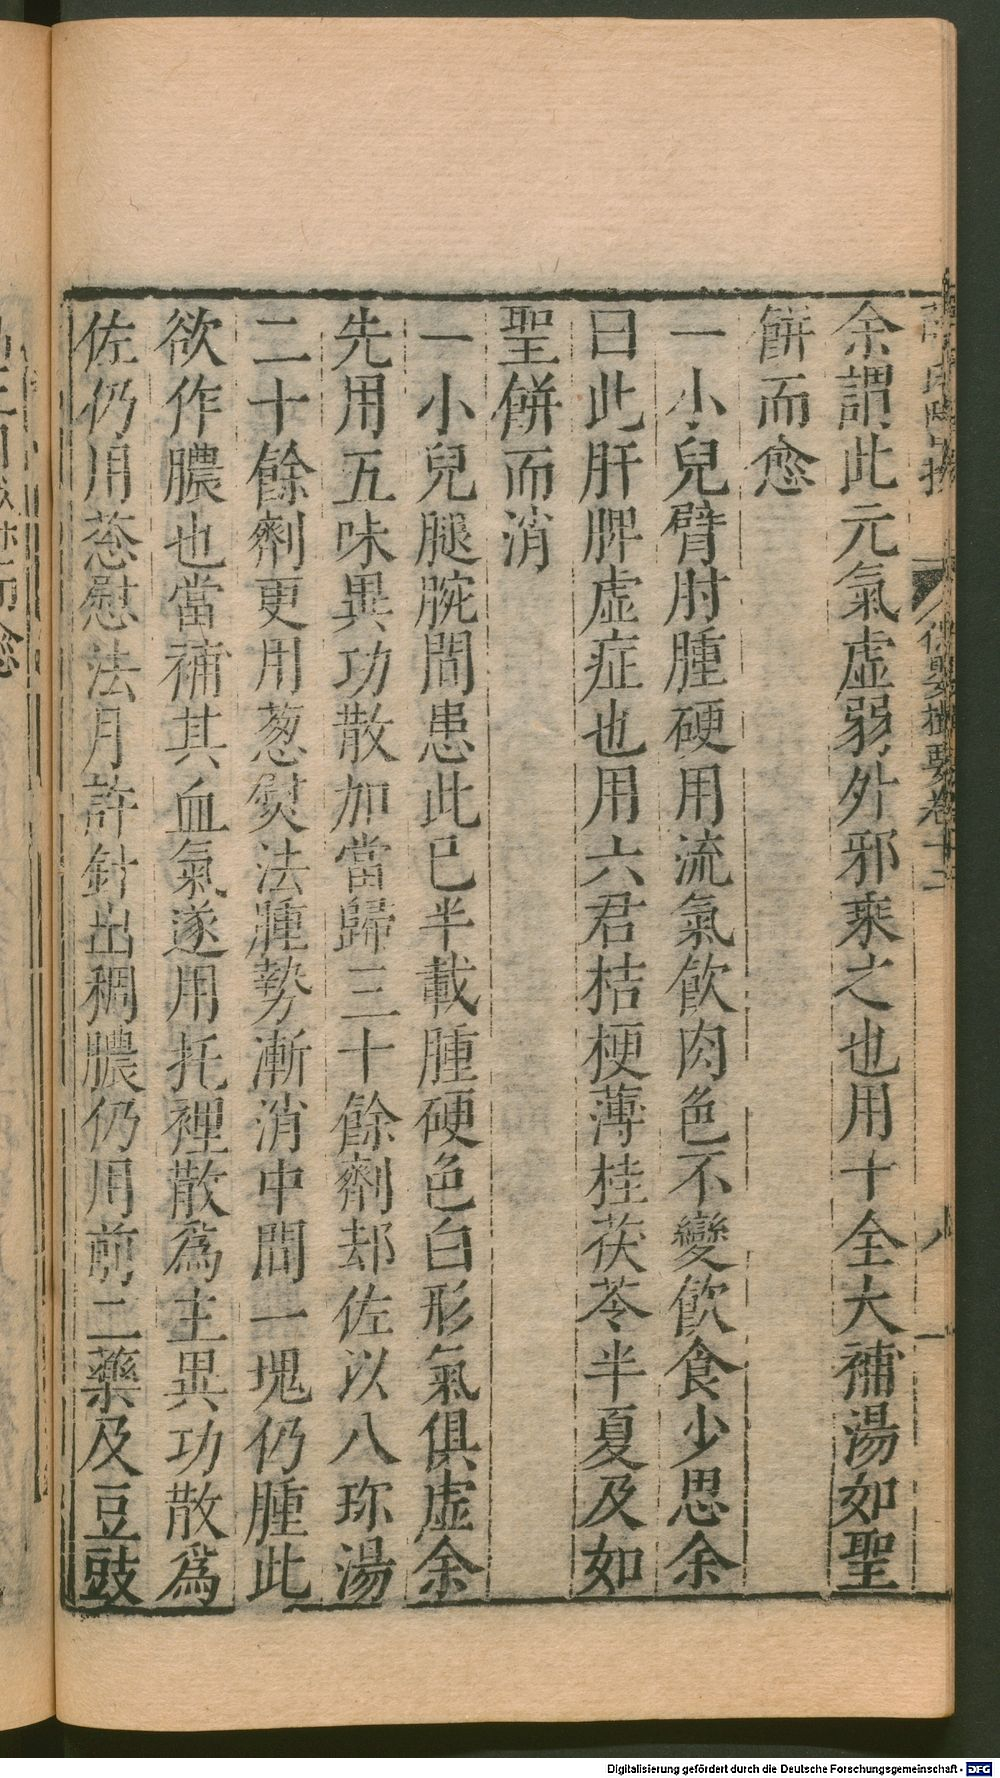 余謂此元氣虛弱外邪乘之也用十全大補湯如聖
餅而愈
一小兒臂肘腫硬用流氣飲肉色不變飲食少思余
曰此肝脾虛症也用六君桔梗薄桂茯苓半夏及如
聖餅而消
一小兒腿腕間患此已半載腫硬色白形氣俱虛余
先用五味異功散加當歸三十餘劑却佐以八珎湯
二十餘劑更用葱熨法腫勢漸消中間一塊仍腫此
欲作膿也當補其血氣遂用托裡散為主異功散為
佐仍用葱慰法月許針出稠膿仍用前二藥及豆豉
保嬰撮要卷十二
Digitalisierung gefördert durch die Deutsche Forschungsgemeinschaft - DFG